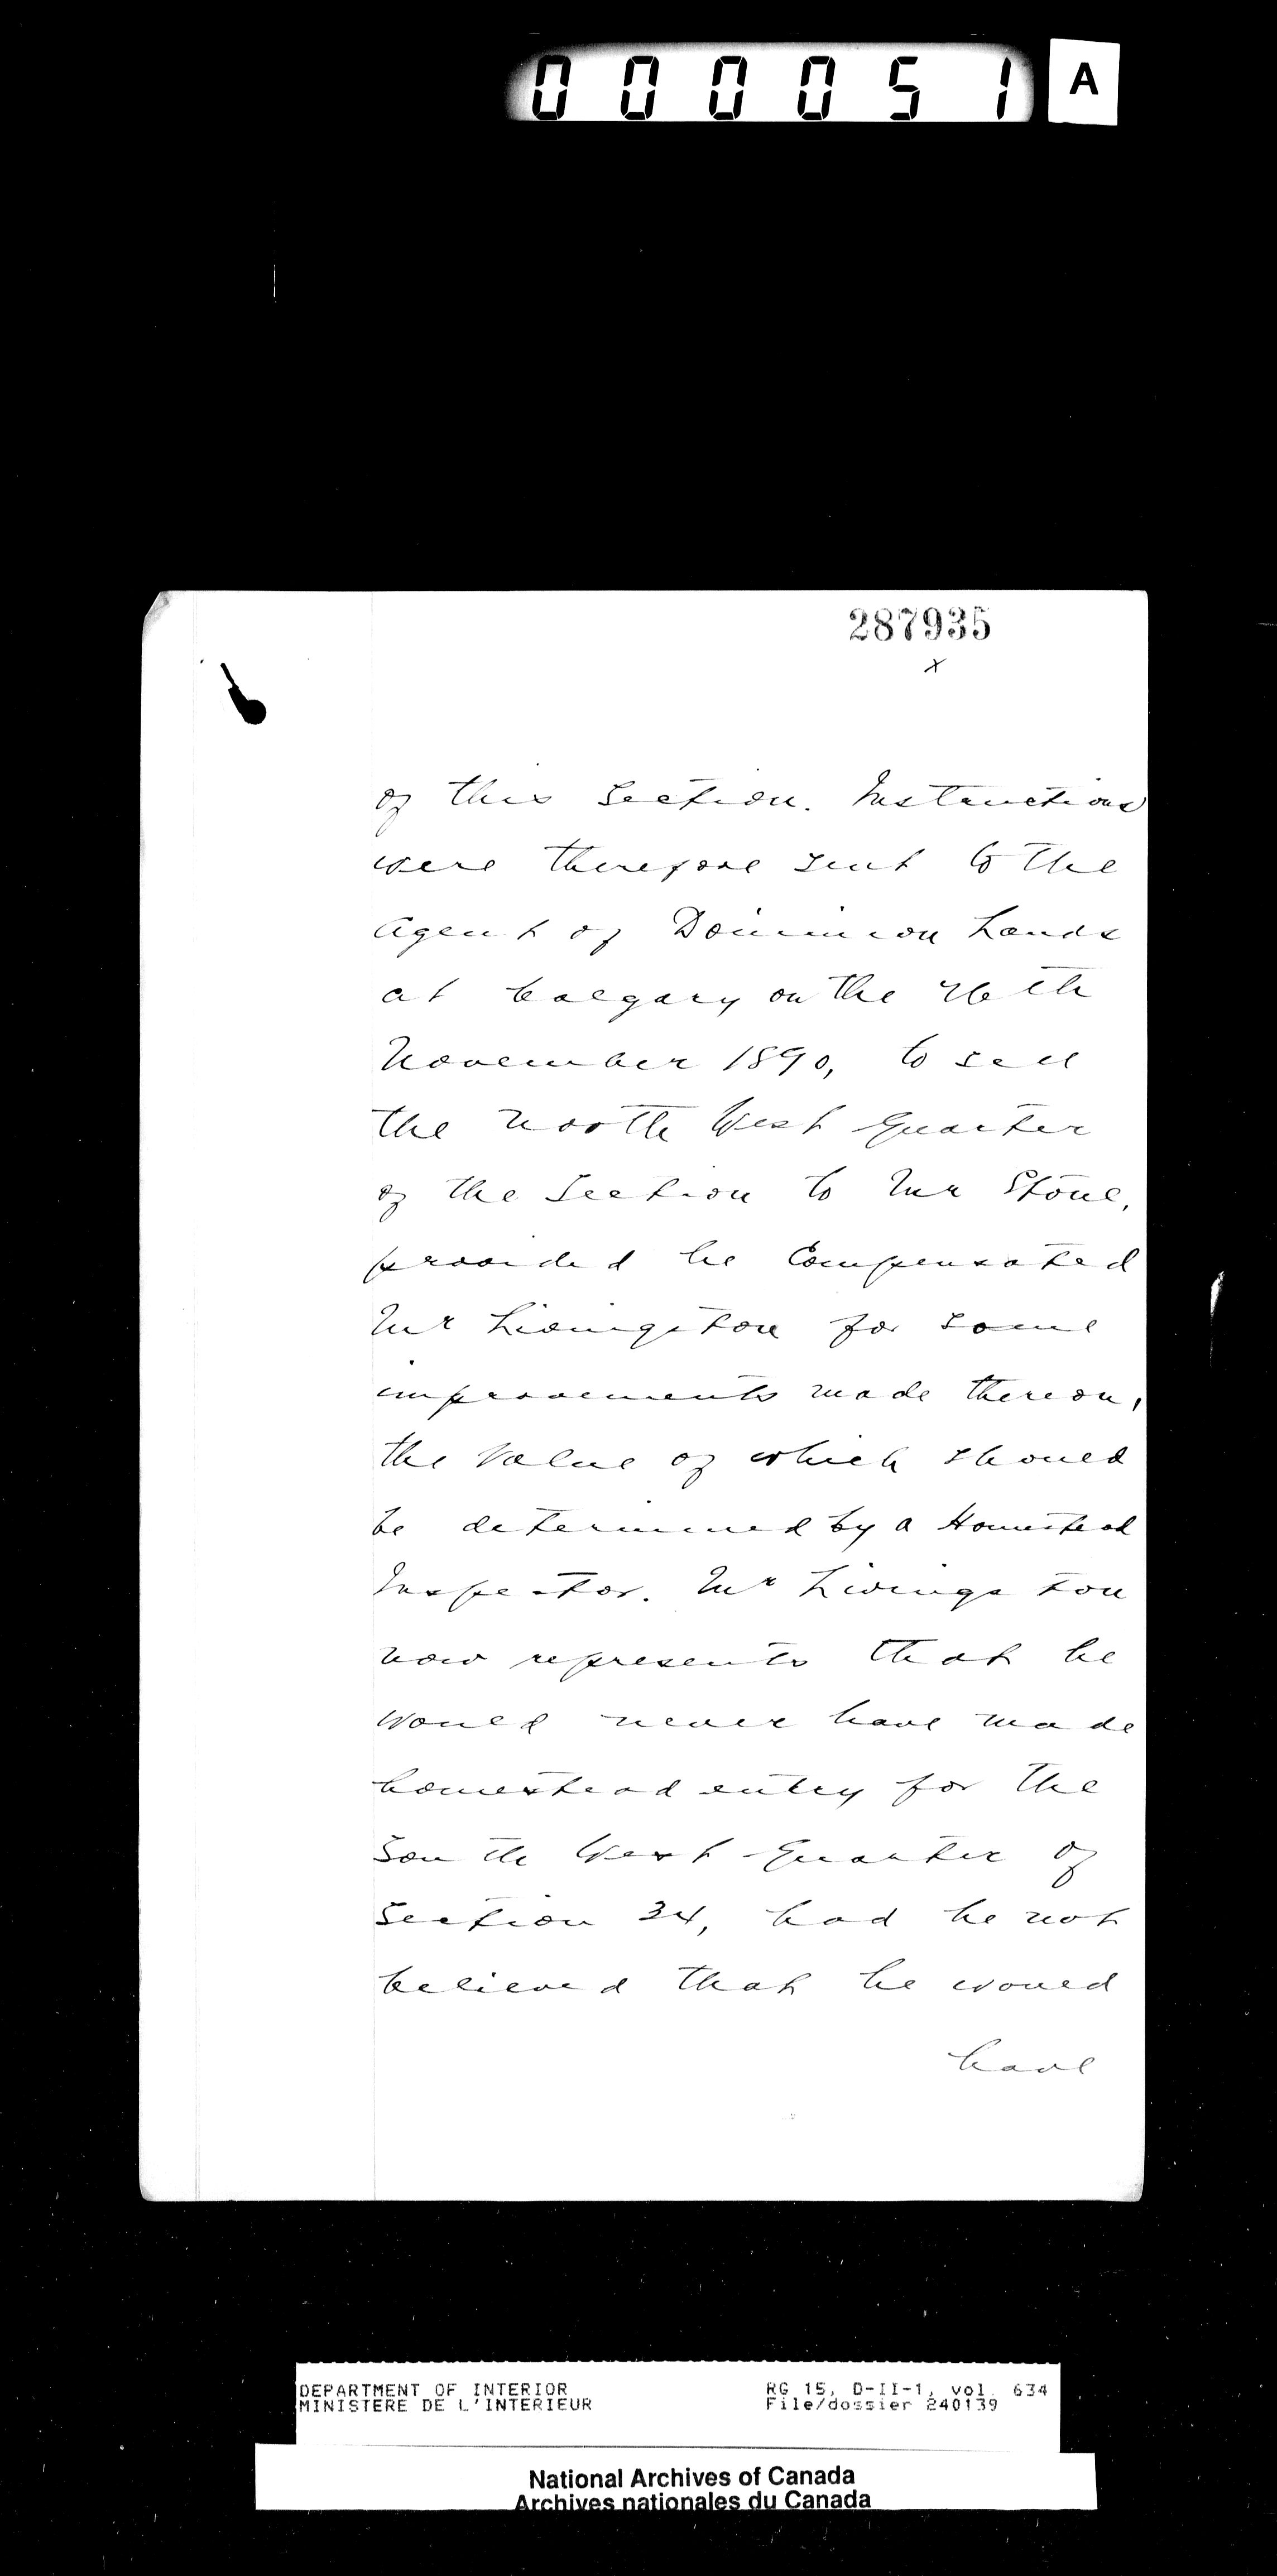 000051 A
287935
x
of this Section. Instructions
were therefore sent to the
Agent of Dominion Lands
at Calgary on the 26th
November 1890, to sell
the North West Quarter
of the Section to Mr Stone,
provided he compensated
Mr Livingston for some
improvements made thereon,
the value of which should
be determined by a Homestead
Inspector. Mr Livingston
now represents that he
would never have made
homestead entry for the
South West Quarter of
Section 34, had he not
believed that he would
have
DEPARTMENT OF INTERIOR RG 15, D-II-1, vol. 634
MINISTERE DE L'INTERIEUR File/dossier 240139
National Archives of Canada
Archives nationales du Canada